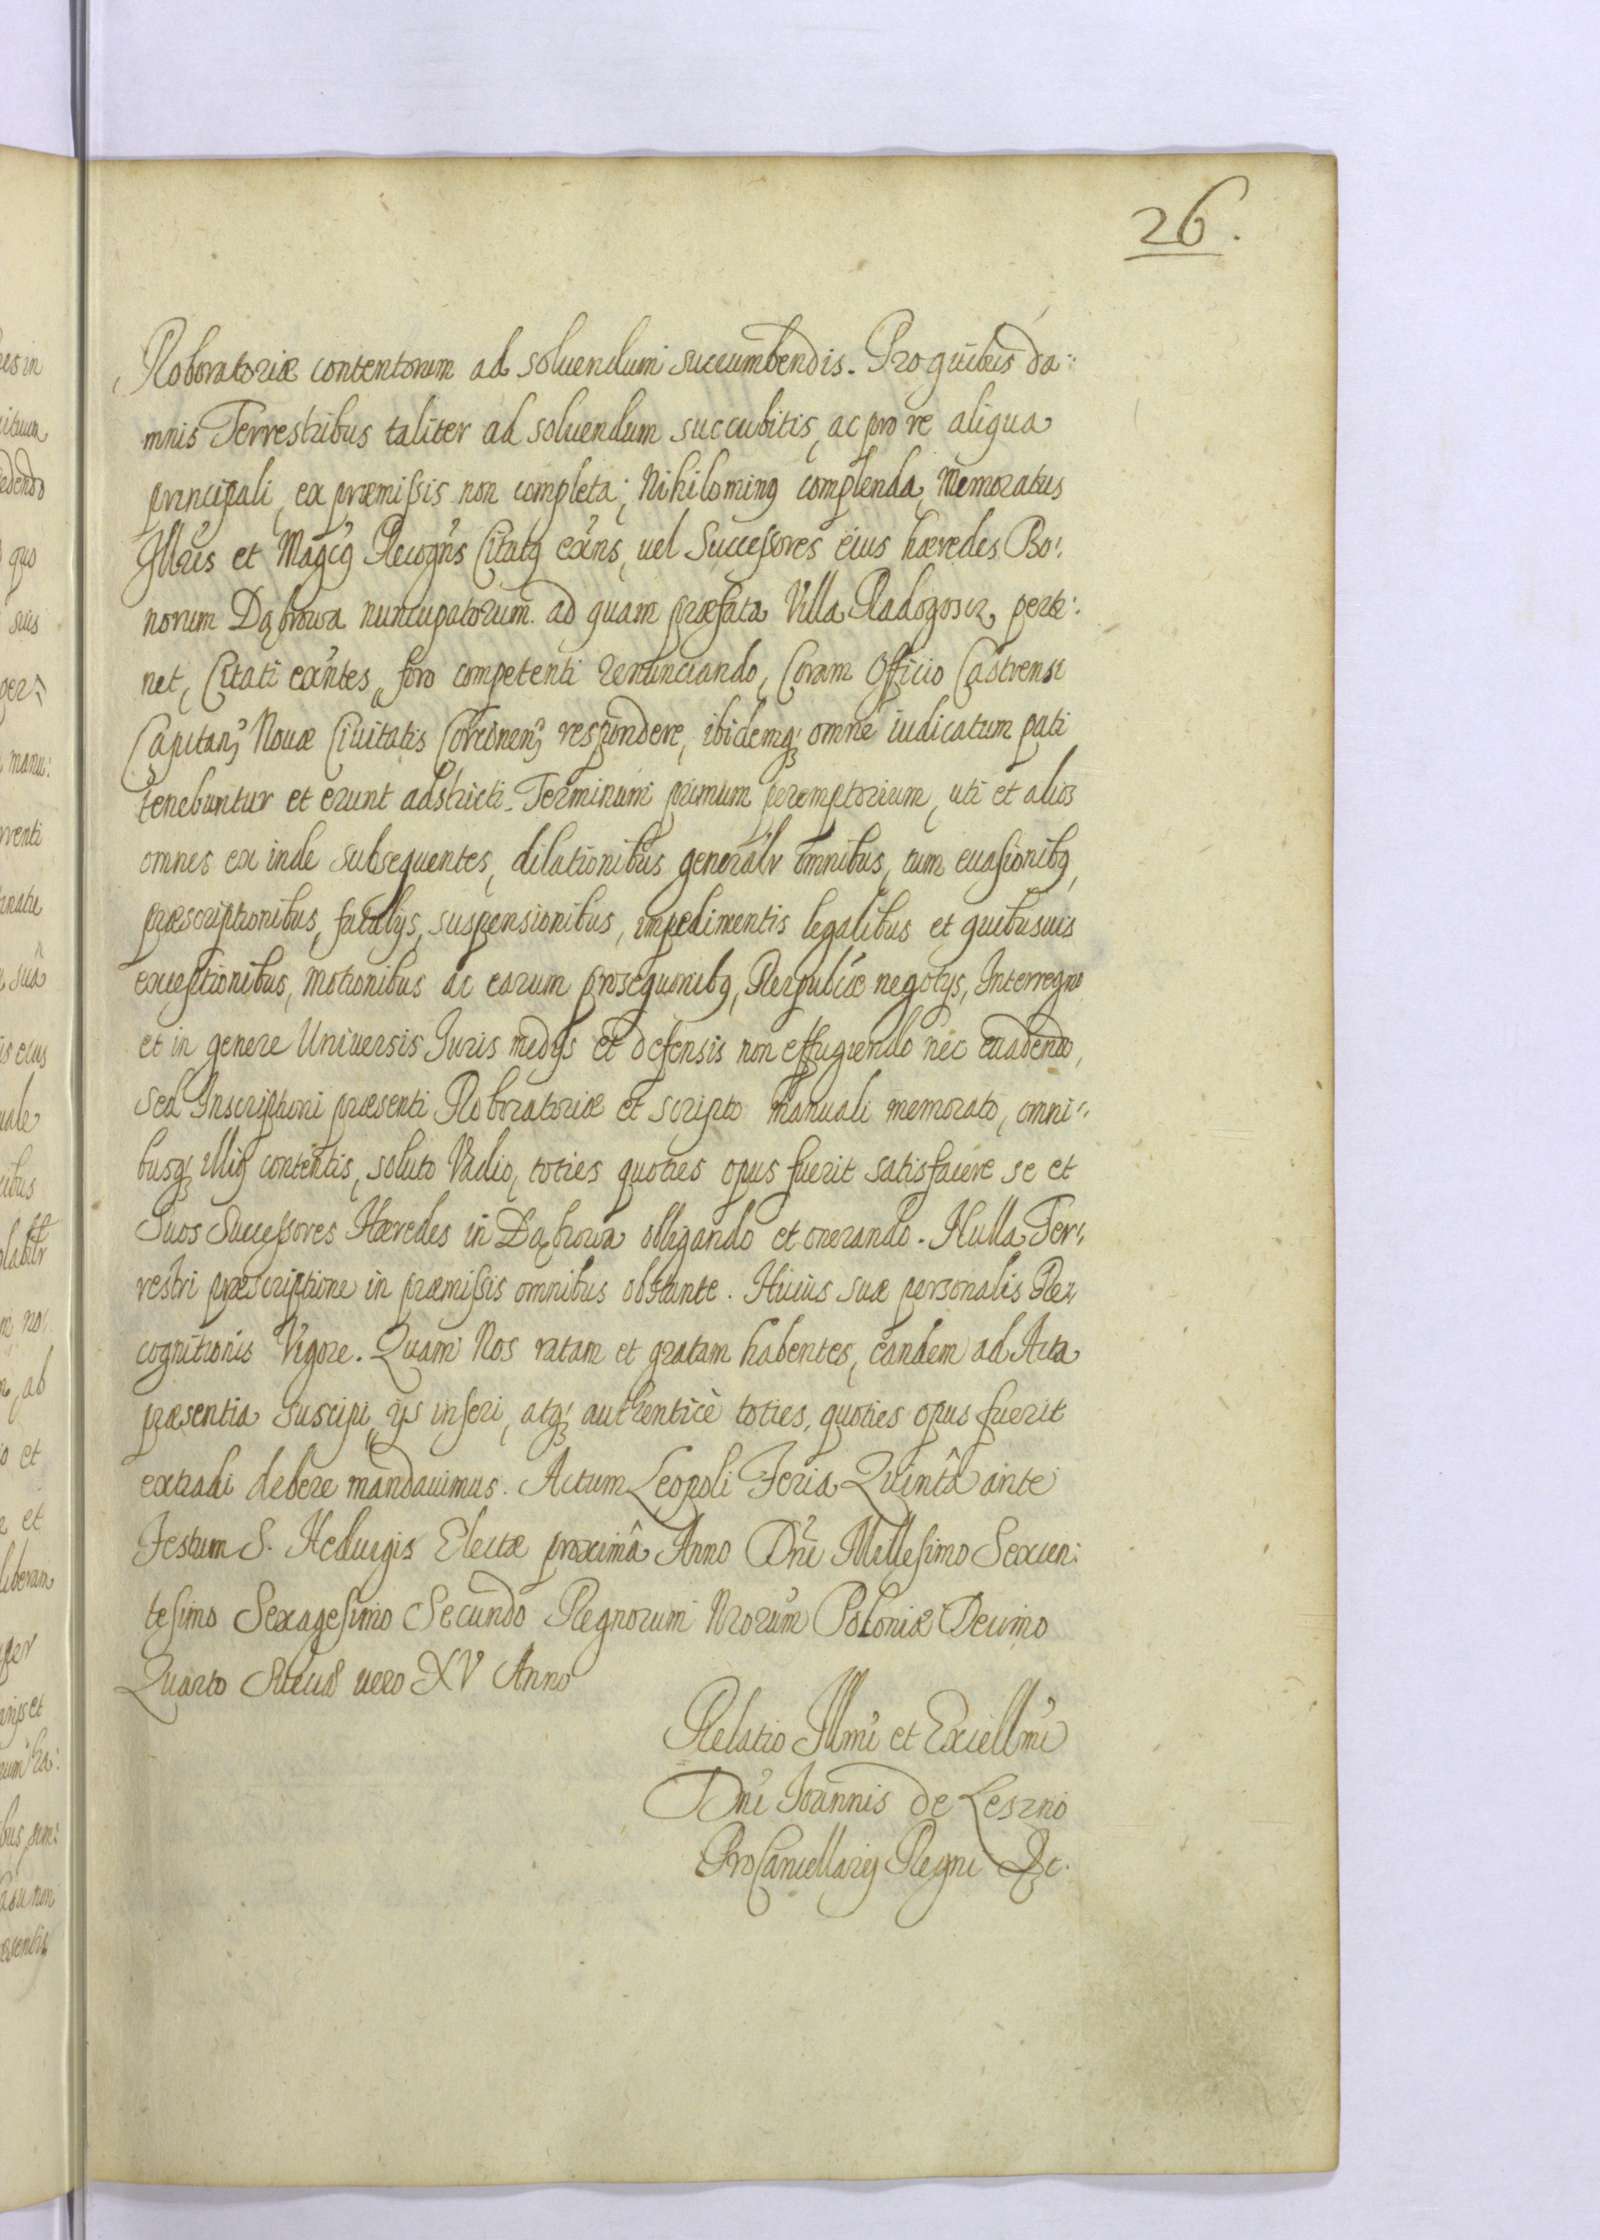 26.
Roboratoriæ contentorum ad soluendum succumbendis. Pro quibus da:
mnis Terrestribus taliter ad soluendum succubitis, ac pro re aliqua
principali, ex præmissis non completa; Nihilominq complenda, Memoratus
Illris et Magcq Recogns Citatq exns, uel Successores eius hæredes Bo:
norum Dąbrowa nuncupatorum ad quam præfata Villa Radogoscz perti:
net, Citati exntes, foro competenti renunciando, Coram Officio Castrensi
Capitan: Nouæ Ciuitatis Corcinen: respondere, ibidemq; omne iudicatum pati
tenebuntur et erunt adstricti. Terminum primum peremptorium, uti et alios
omnes ex inde subsequentes, dilationibus generalr omnibus, tum euasionibq,
præscriptionibus, fatalijs, suspensionibus, impedimentis legalibus et quibusuis
exceptionibus, motionibus ac earum prosequtionibq, Reipublicæ negotijs, Interregno
et in genere Uniuersis Iuris medijs et defensis non effugiendo nec euadendo,
sed Inscriptioni præsenti Roboratoriæ et scripto manuali memorato, omni:
busq; illiq contentis, soluto Vadio, toties quoties opus fuerit satisfacere se et
Suos Successores Hæredes in Dąbrowa obligando et onerando. Nulla Ter:
restri præscriptione in præmissis omnibus obstante. Huius suæ personalis Re:
cognitionis Vigore. Quam Nos ratam et gratam habentes, eandem ad Acta
præsentia suscipi, ijs inseri, atq; authenticè toties, quoties opus fuerit
extradi debere mandauimus. Actum Leopoli Feria Quintâ ante
Festum S. Heduigis Electæ proximâ Anno Dni Millesimo Sexcen:
tesimo Sexagesimo Secundo Regnorum Nrorum Poloniæ Decimo
Quarto Sueciæ uero XV Anno
Relatio Illmi et Excellmi
Dni Ioannis de Leszno
ProCancellarij Regni &c.